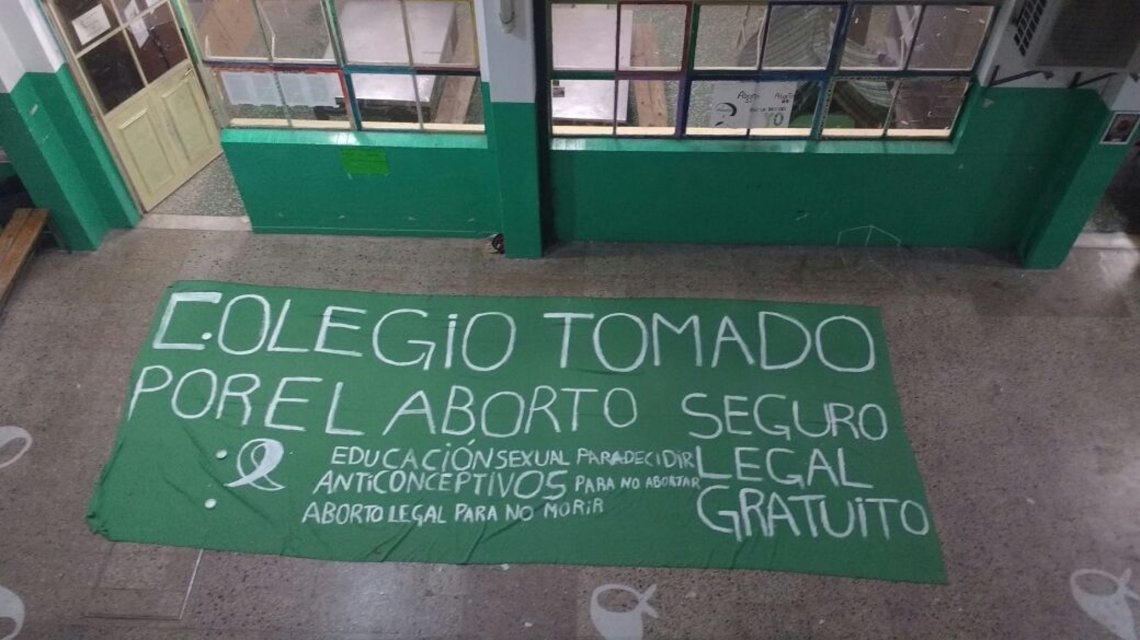 COLEGiO TOMADO
POR EL ABORTO
SEGURO
LEGAL
GRATUiTO
EDUCACIÓN SEXUAL PARA DECIDIR
ANTiCONCEPTiVOS PARA NO ABORTAR
ABORTO LEGAL PARA NO MORIR
YO